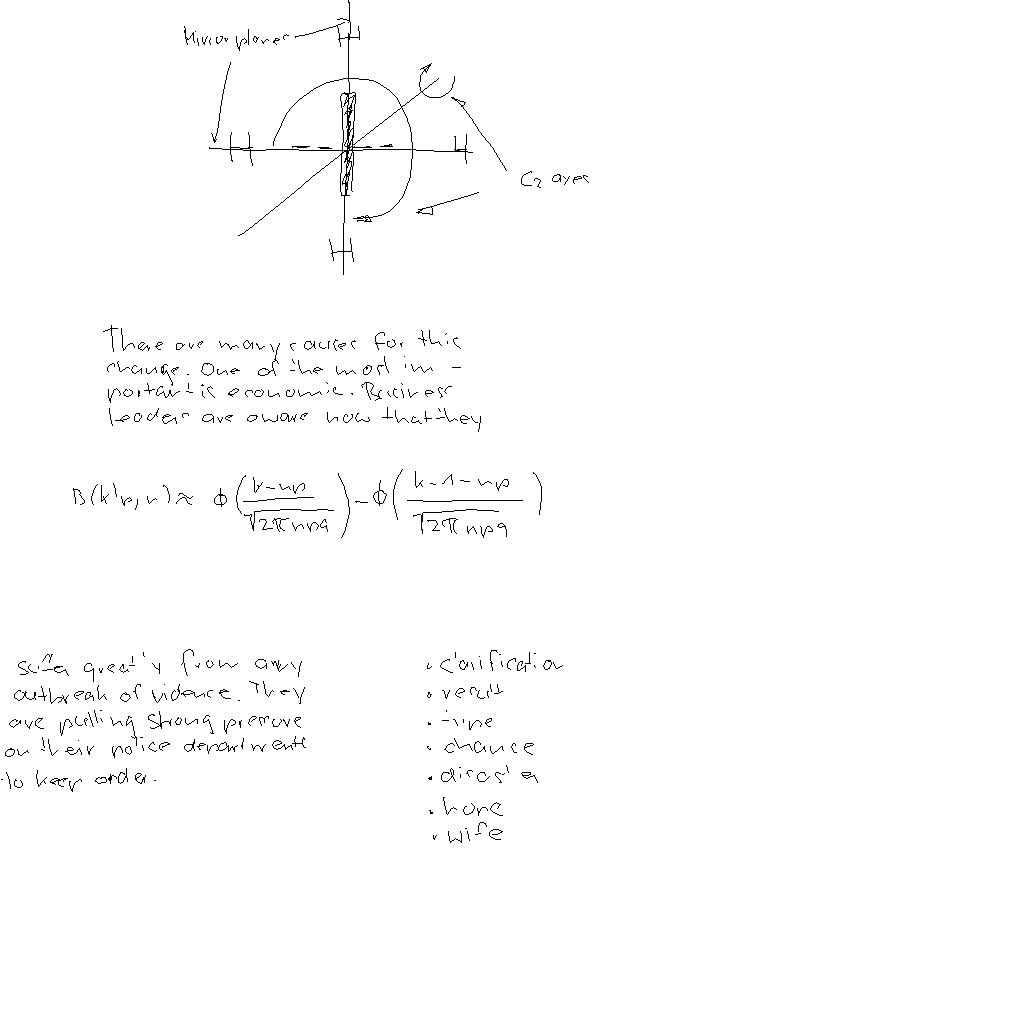 Mirror planes
H
H
H
H
C2 axes
There are many causes for this
change. One of the most im-
portant is economic. Business
leaders are aware now that they
B(k|p,n) ≈ ϕ((k-np)/√(2πnpq)) - ϕ((k-1-np)/√(2πnpq))
suffer greatly from any
outbreak of violence. They
are putting strong pressure
on their police departments
to keep order.
• clarification
• result
• time
• chance
• disaster
• home
• wife